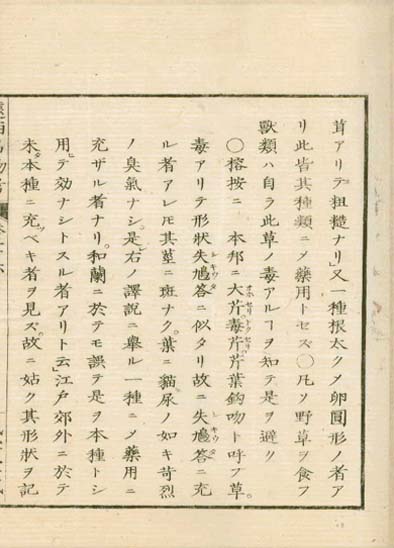 茸アリテ粗糙ナリ」又一種根太クメ卵圓形ノ者ア
リ此皆其種類ニメ藥用トセズ〇凡ソ野草ヲ食フ
獸類ハ自ラ此草ノ毒アルヿヲ知テ是ヲ避ク
〇榕按ニ 本邦ニ大芹毒芹芹葉鈎吻ト呼フ草。
毒アリテ形狀失鳩答ニ似タリ故ニ失鳩答ニ充
ル者アレ𪜈其莖ニ斑ナク。葉ニ貓尿ノ如キ苛烈
ノ臭氣ナシ。是レ右ノ譯説ニ舉ル一種ニメ藥用ニ
充ザル者ナリ。和蘭ニ於テモ誤テ是ヲ本種トシ
用ヒテ効ナシトスル者アリト云」江戸郊外ニ於テ
未タ本種ニ充ツベキ者ヲ見ズ。故ニ姑ク其形狀ヲ記